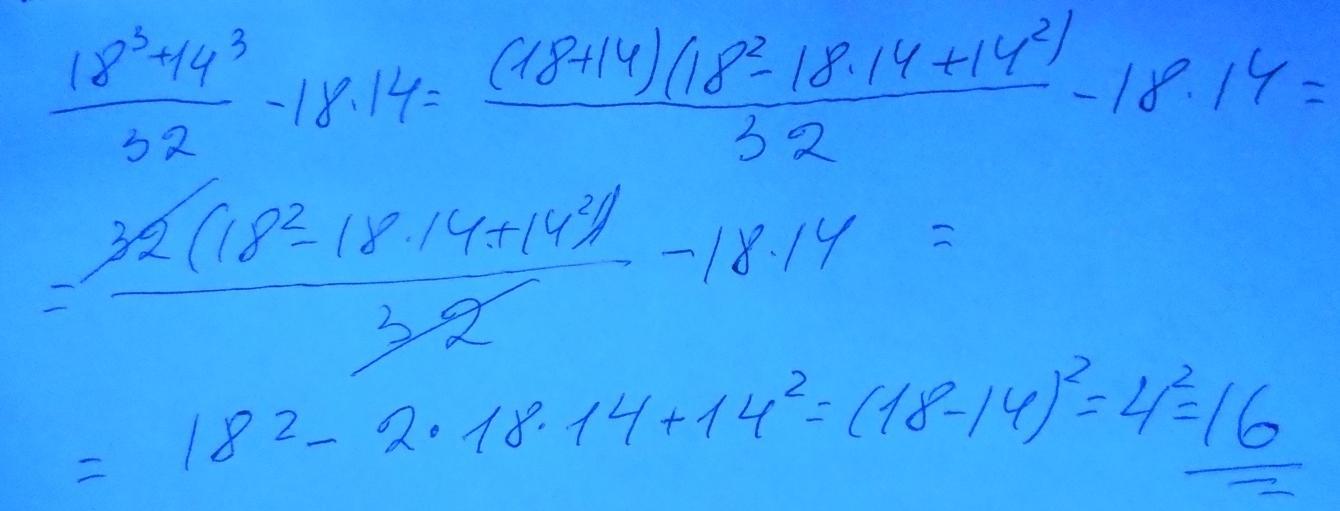 (18³+14³)/32 - 18.14 = ((18+14)(18²-18.14+14²))/32 - 18.14 =
= (32(18²-18.14+14²))/32 - 18.14 =
= 18² - 2.18.14+14² = (18-14)² = 4² = 16